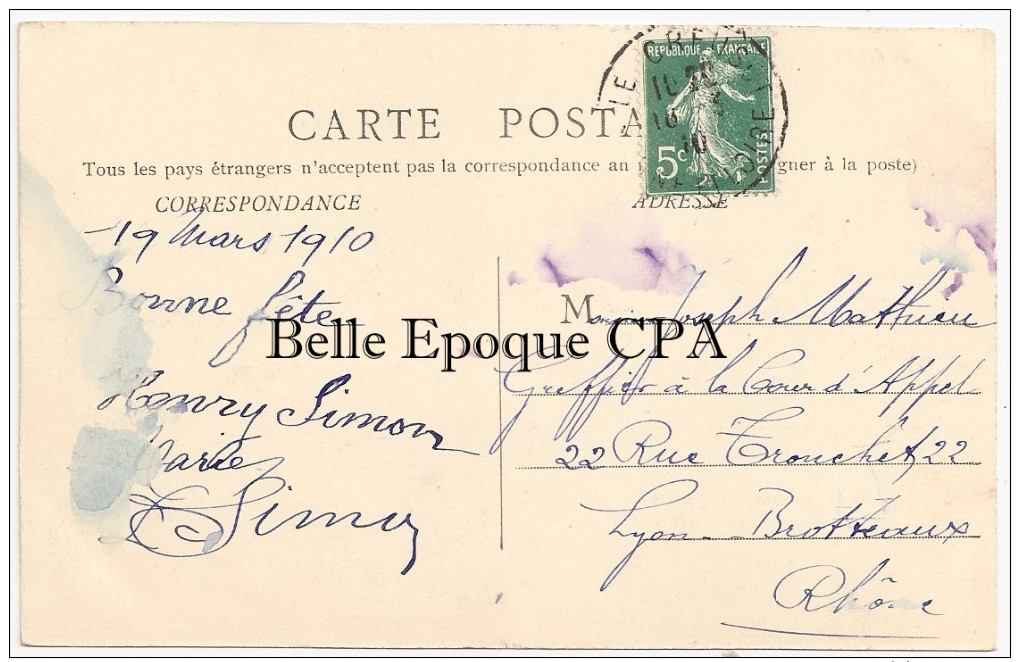 RÉPUBLIQUE FRANÇAISE
5c POSTES
LE CREUSOT
CARTE POSTA
Tous les pays étrangers n'acceptent pas la correspondance au gner à la poste)
CORRESPONDANCE
19 Mars 1910
Bonne fête
Henry Simon
Marie
Simon
ADRESSE
Monsieur Joseph Mathieu
Greffier à la Cour d'Appel
22 Rue Tronchet, 22
Lyon - Brotteaux
Rhône
Belle Epoque CPA